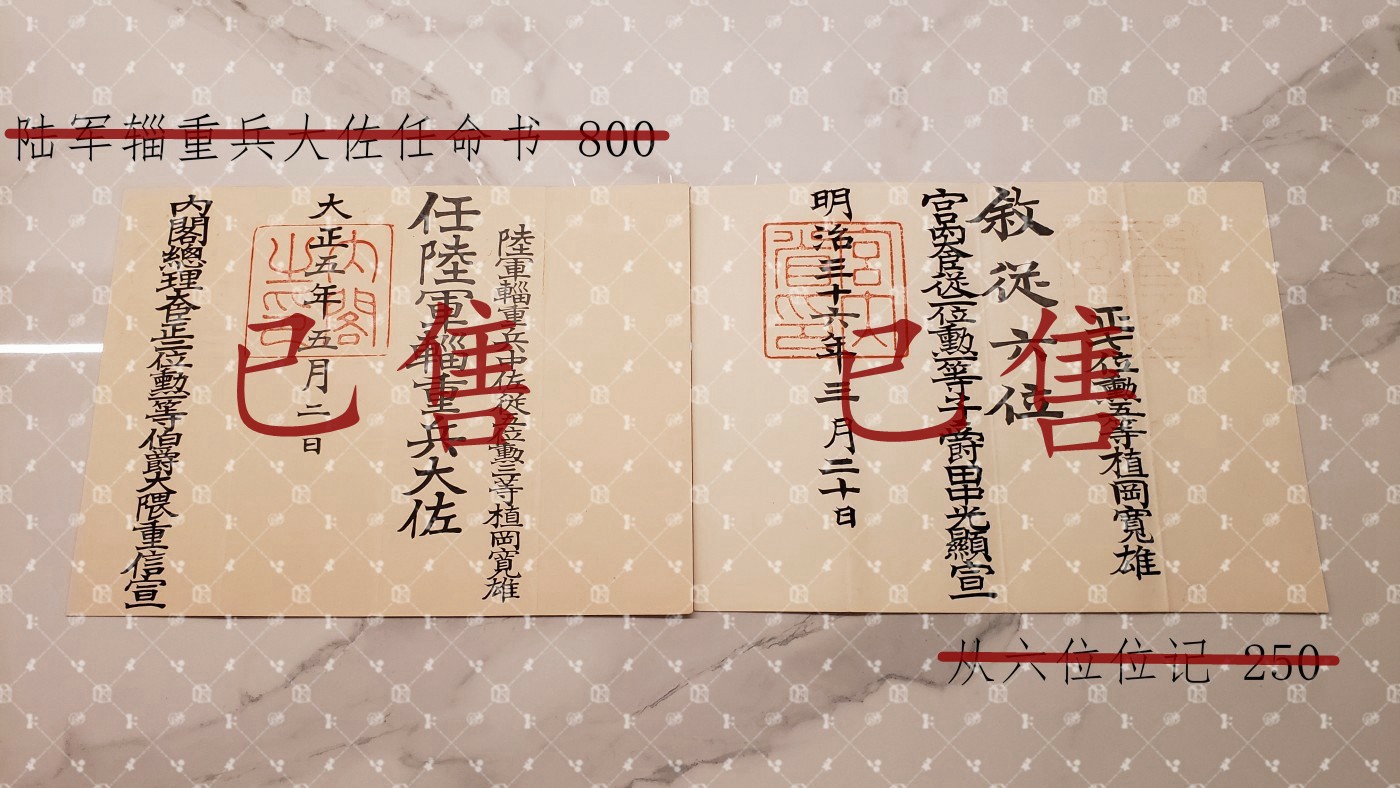 陆军辎重兵大佐任命书 800
敘従六位
正七位勳五等植岡寛雄
宮内大臣従二位勳一等子爵田中光顯宣
明治三十六年三月二十日
宮内省印
陸軍輜重兵中佐従五位勳三等植岡寛雄
任陸軍輜重兵大佐
大正五年五月二日
内閣之印
内閣總理大臣正二位勳一等伯爵大隈重信宣
已售
已售
从六位位记 250